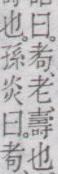 曰。耇、老壽也
也。孫炎曰。耇